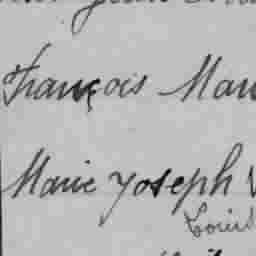 François Mau
Marie Yoseph
Louis